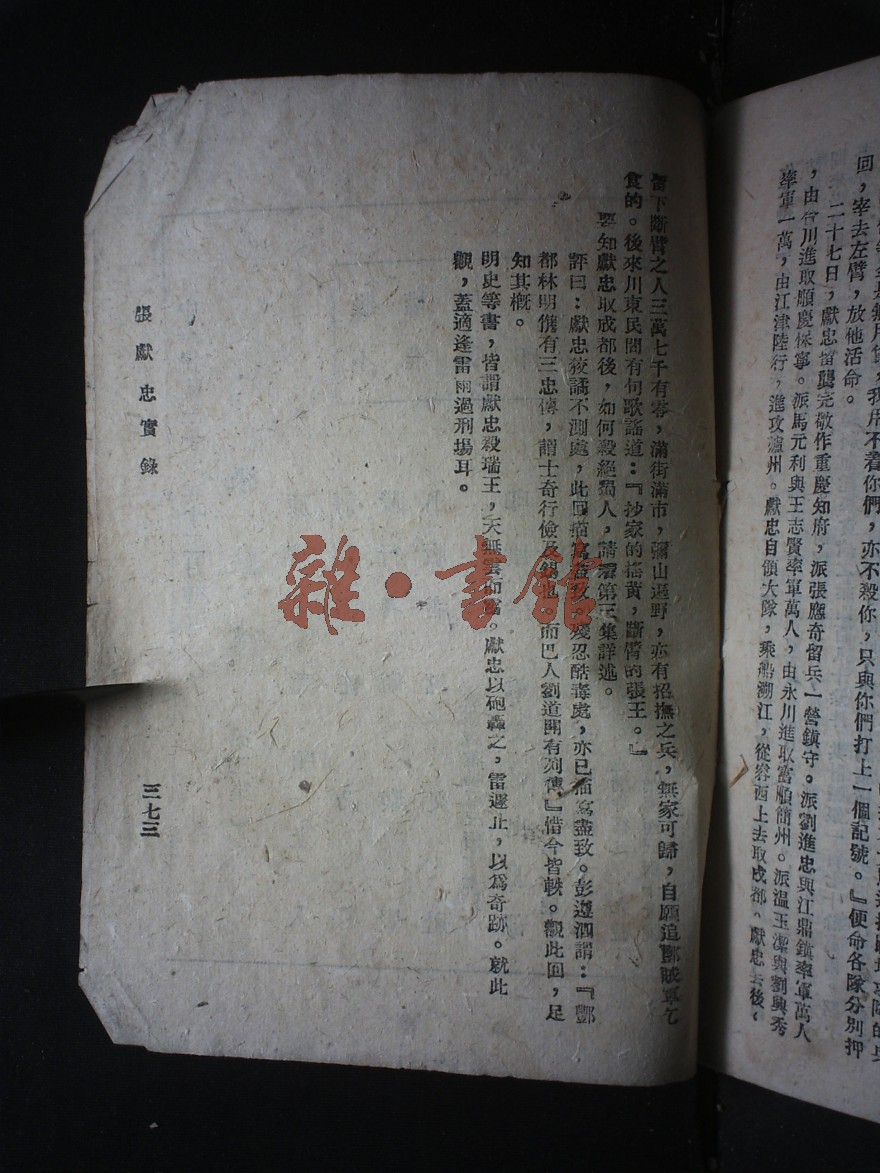 回，宰去左臂，放他活命。
二十七日，獻忠留龔完敬作重慶知府，派張應奇留兵一營鎮守。派劉進忠與江鼎鎮率軍萬人
，由合川進取順慶保寧。派馬元利與王志賢率軍萬人，由永川進取富順簡州。派溫玉潔與劉興秀
率軍一萬，由江津陸行，進攻瀘州。獻忠自領大隊，乘船溯江，從西上去取成都。獻忠去後，
留下斷臂之人三萬七千有零，滿街滿市，彌山遍野，亦有招撫之兵，無家可歸，自願追隨賊軍乞
食的。後來川東民間有句歌謠道：『抄家的搖黃，斷臂的張王。』
要知獻忠取成都後，如何殺絕蜀人，請看第三集詳述。
評曰：獻忠狡譎不測處，此回描寫盡致。殘忍酷毒處，亦已描寫盡致。彭遵泗謂：『酆
都林明儁有三忠傳，謂士奇行儉及錫也。而巴人劉道開有列傳。』惜今皆軼。觀此回，足
知其概。
明史等書，皆謂獻忠殺瑞王，天無雲而雷。獻忠以砲轟之，雷遽止，以為奇跡。就此
觀，蓋適逢雷雨過刑場耳。
張獻忠實錄
三七三
雜·書館